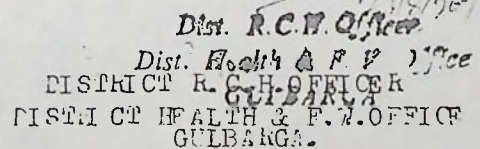 Dist. R.C.H. Officer
Dist. Health & F W Office
DISTRICT R.C.H.OFFICER
GULBARGA
DISTRICT HEALTH & F.W.OFFICE
GULBARGA.